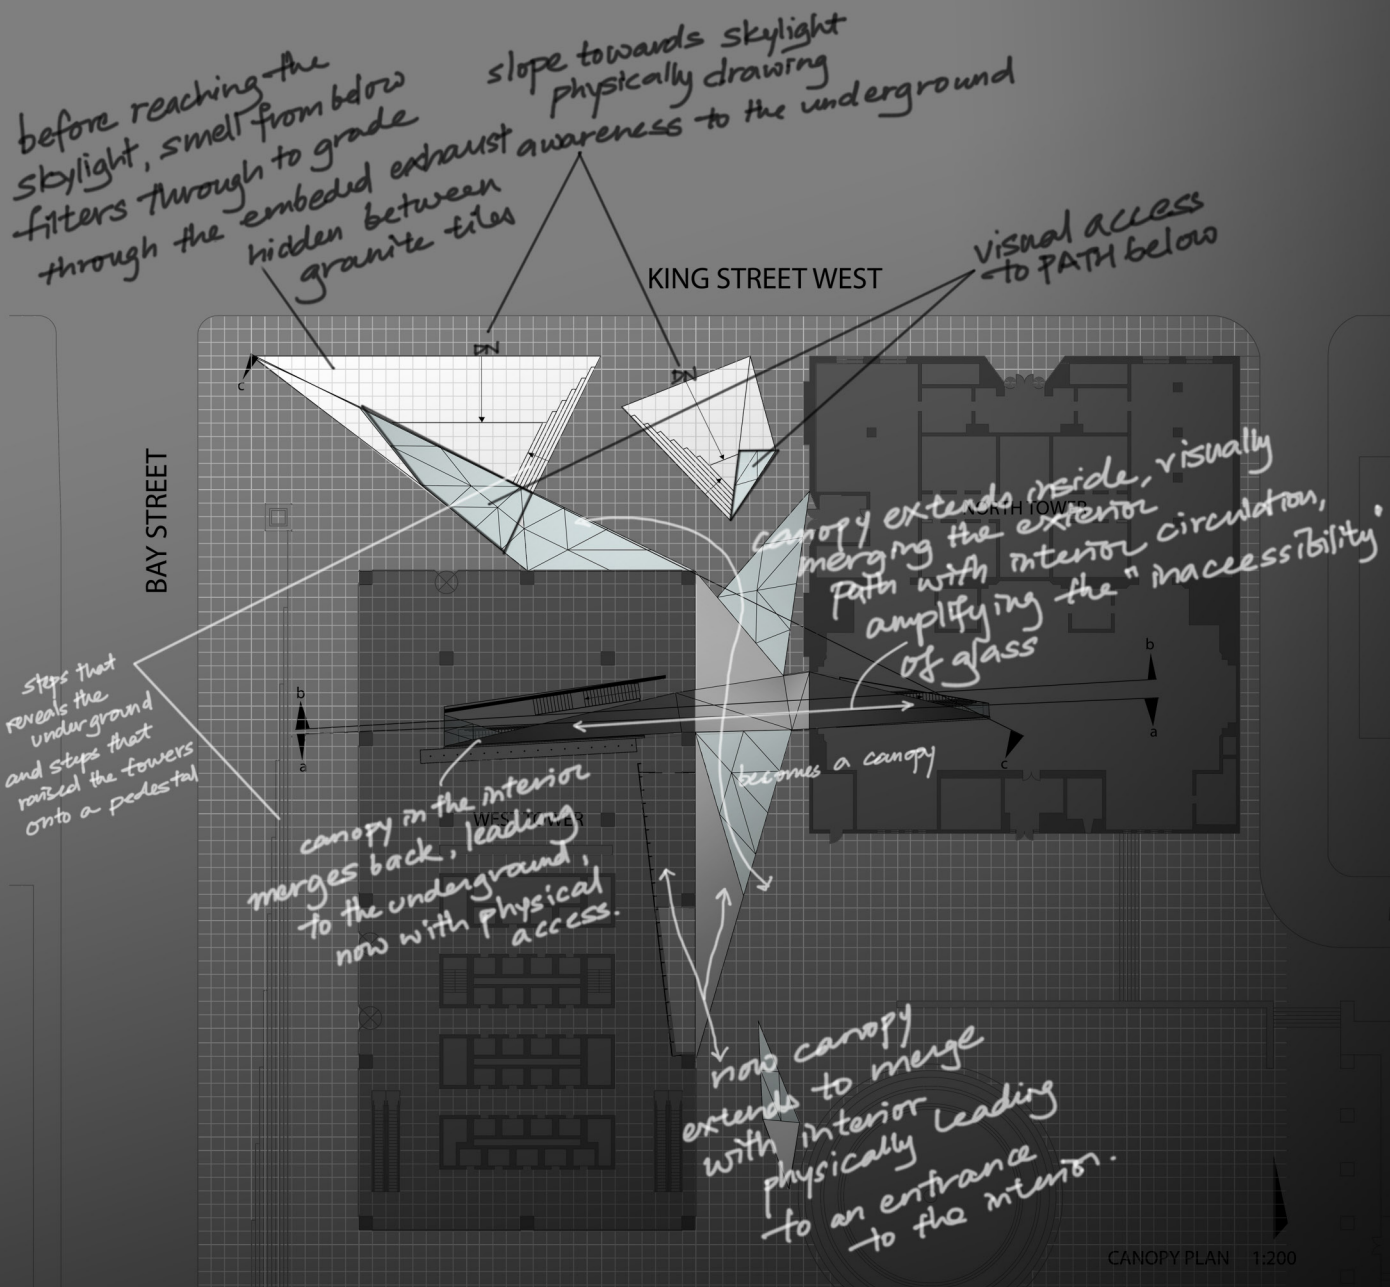 before reaching the
skylight, smell from below
filters through to grade
through the embeded exhaust
hidden between
granite tiles
slope towards skylight
physically drawing
awareness to the underground
visual access
to PATH below
KING STREET WEST
DN
DN
c
BAY STREET
NORTH TOWER
canopy extends inside, visually
merging the exterior
path with interior circulation,
amplifying the "inaccessibility"
of glass
steps that
reveals the
underground
and steps that
raised the towers
onto a pedestal
b
a
b
a
c
becomes a canopy
WEST TOWER
canopy in the interior
merges back, leading
to the underground,
now with physical
access.
now canopy
extends to merge
with interior
physically leading
to an entrance
to the interior.
CANOPY PLAN 1:200